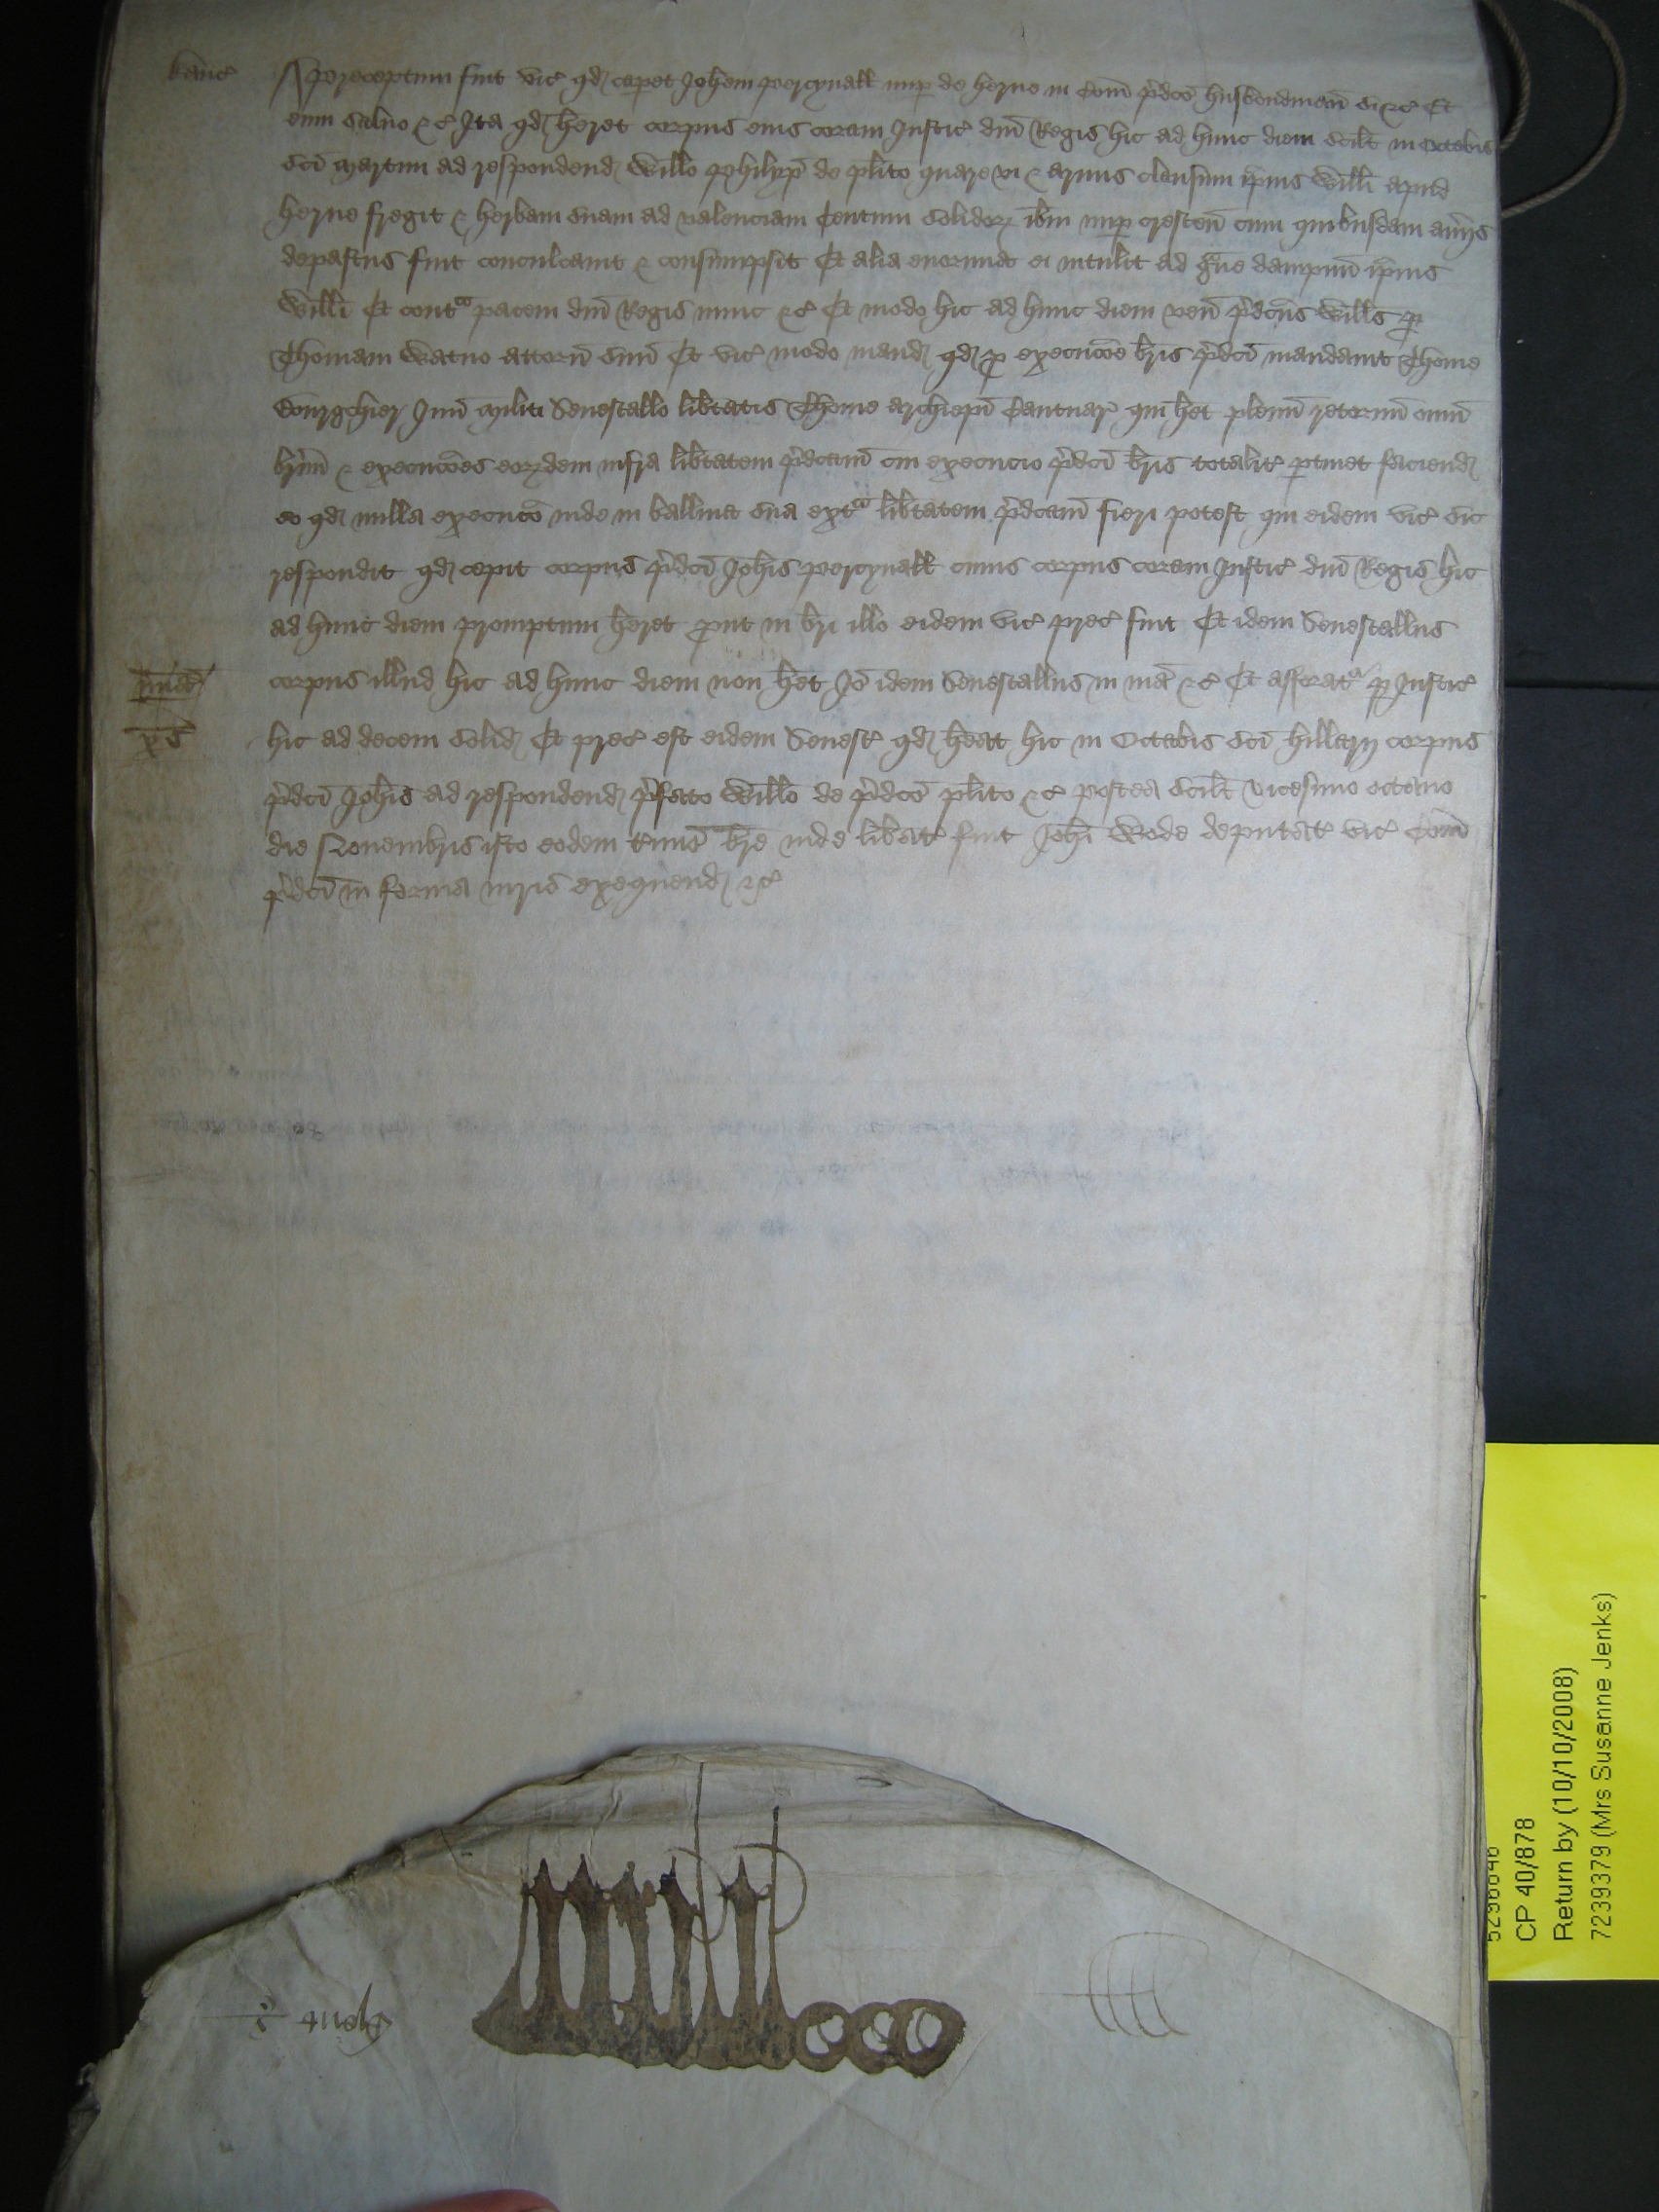 kanc̄
Preceptum fuit vic̄ qd caperet Joh̄em percyuall nup de herne in Com̄ p̄dc̄o husbondman̄ si &c̄ Et
eum saluo &c̄ Ita qd h̄eret corpus eius coram Justic̄ dn̄i Regis hic ad hunc diem scilt in Octabis
sc̄i martini ad respondend Will̄o philipp̄ de pl̄ito quare vi & armis clausum ip̄ius Will̄i apud
herne fregit & herbam suam ad valenciam Centum solidoꝝ ib̄m nup crescen̄ cum quibusdam au̅ijs
depastus fuit conculcauit & consumpsit Et alia enormia ei intulit ad g̃ue dampnū ip̄ius
Will̄i Et contᵃ pacem dn̄i Regis nunc &c̄ Et modo hic ad hunc diem ven̄ p̄dc̄us Will̄s ꝑ
Thomam Watno attorn̄ suū Et vic̄ modo mand qd ꝑ execuc̄oe br̄is p̄dc̄i mandauit Thome
Bourgchier Jun̄ militi Senescallo lib̄tatis Thome archiep̄i Cantuar̄ qui h̄et plenū retornū om̄i
br̄iū & execuc̄oes eoꝝdem infra lib̄tatem p̄dc̄am cui execucio p̄dc̄i br̄is totalit̄ ꝑtinet faciend
eo qd nulla execuc̄o inde in balliua sua extᵃ lib̄tatem p̄dc̄am fieri potest qui eidem vic̄ sic
respondit qd cepit corpus p̄dc̄i Joh̄is percyuall cuius corpus coram Justic̄ dn̄i Regis hic
ad hunc diem promptum h̄eret ꝓut in br̄i illo eidem vic̄ prec̄ fuit Et idem Senescallus
corpus illud hic ad hunc diem non h̄et Jō idem Senescallus in mīa &c̄ Et afferatᵃ ꝑ Justic̄
xs̄
hic ad decem solid Et prec̄ est eidem Senesc̄ qd h̄eat hic in Octabis sc̄i hillarij corpus
p̄dc̄i Joh̄is ad respondend p̄fato Will̄o de p̄dc̄o pl̄ito &c̄ postea scilt vicesimo octauo
die Nouembris isto eodem t̄mīo br̄e inde lib̄at̄ fuit Joh̄i Wode deputat̄ vic̄ Com̄
p̄dc̄i in forma iuris exequend &c̄
CP 40/878
Return by (10/10/2008)
7239379 (Mrs Susanne Jenks)